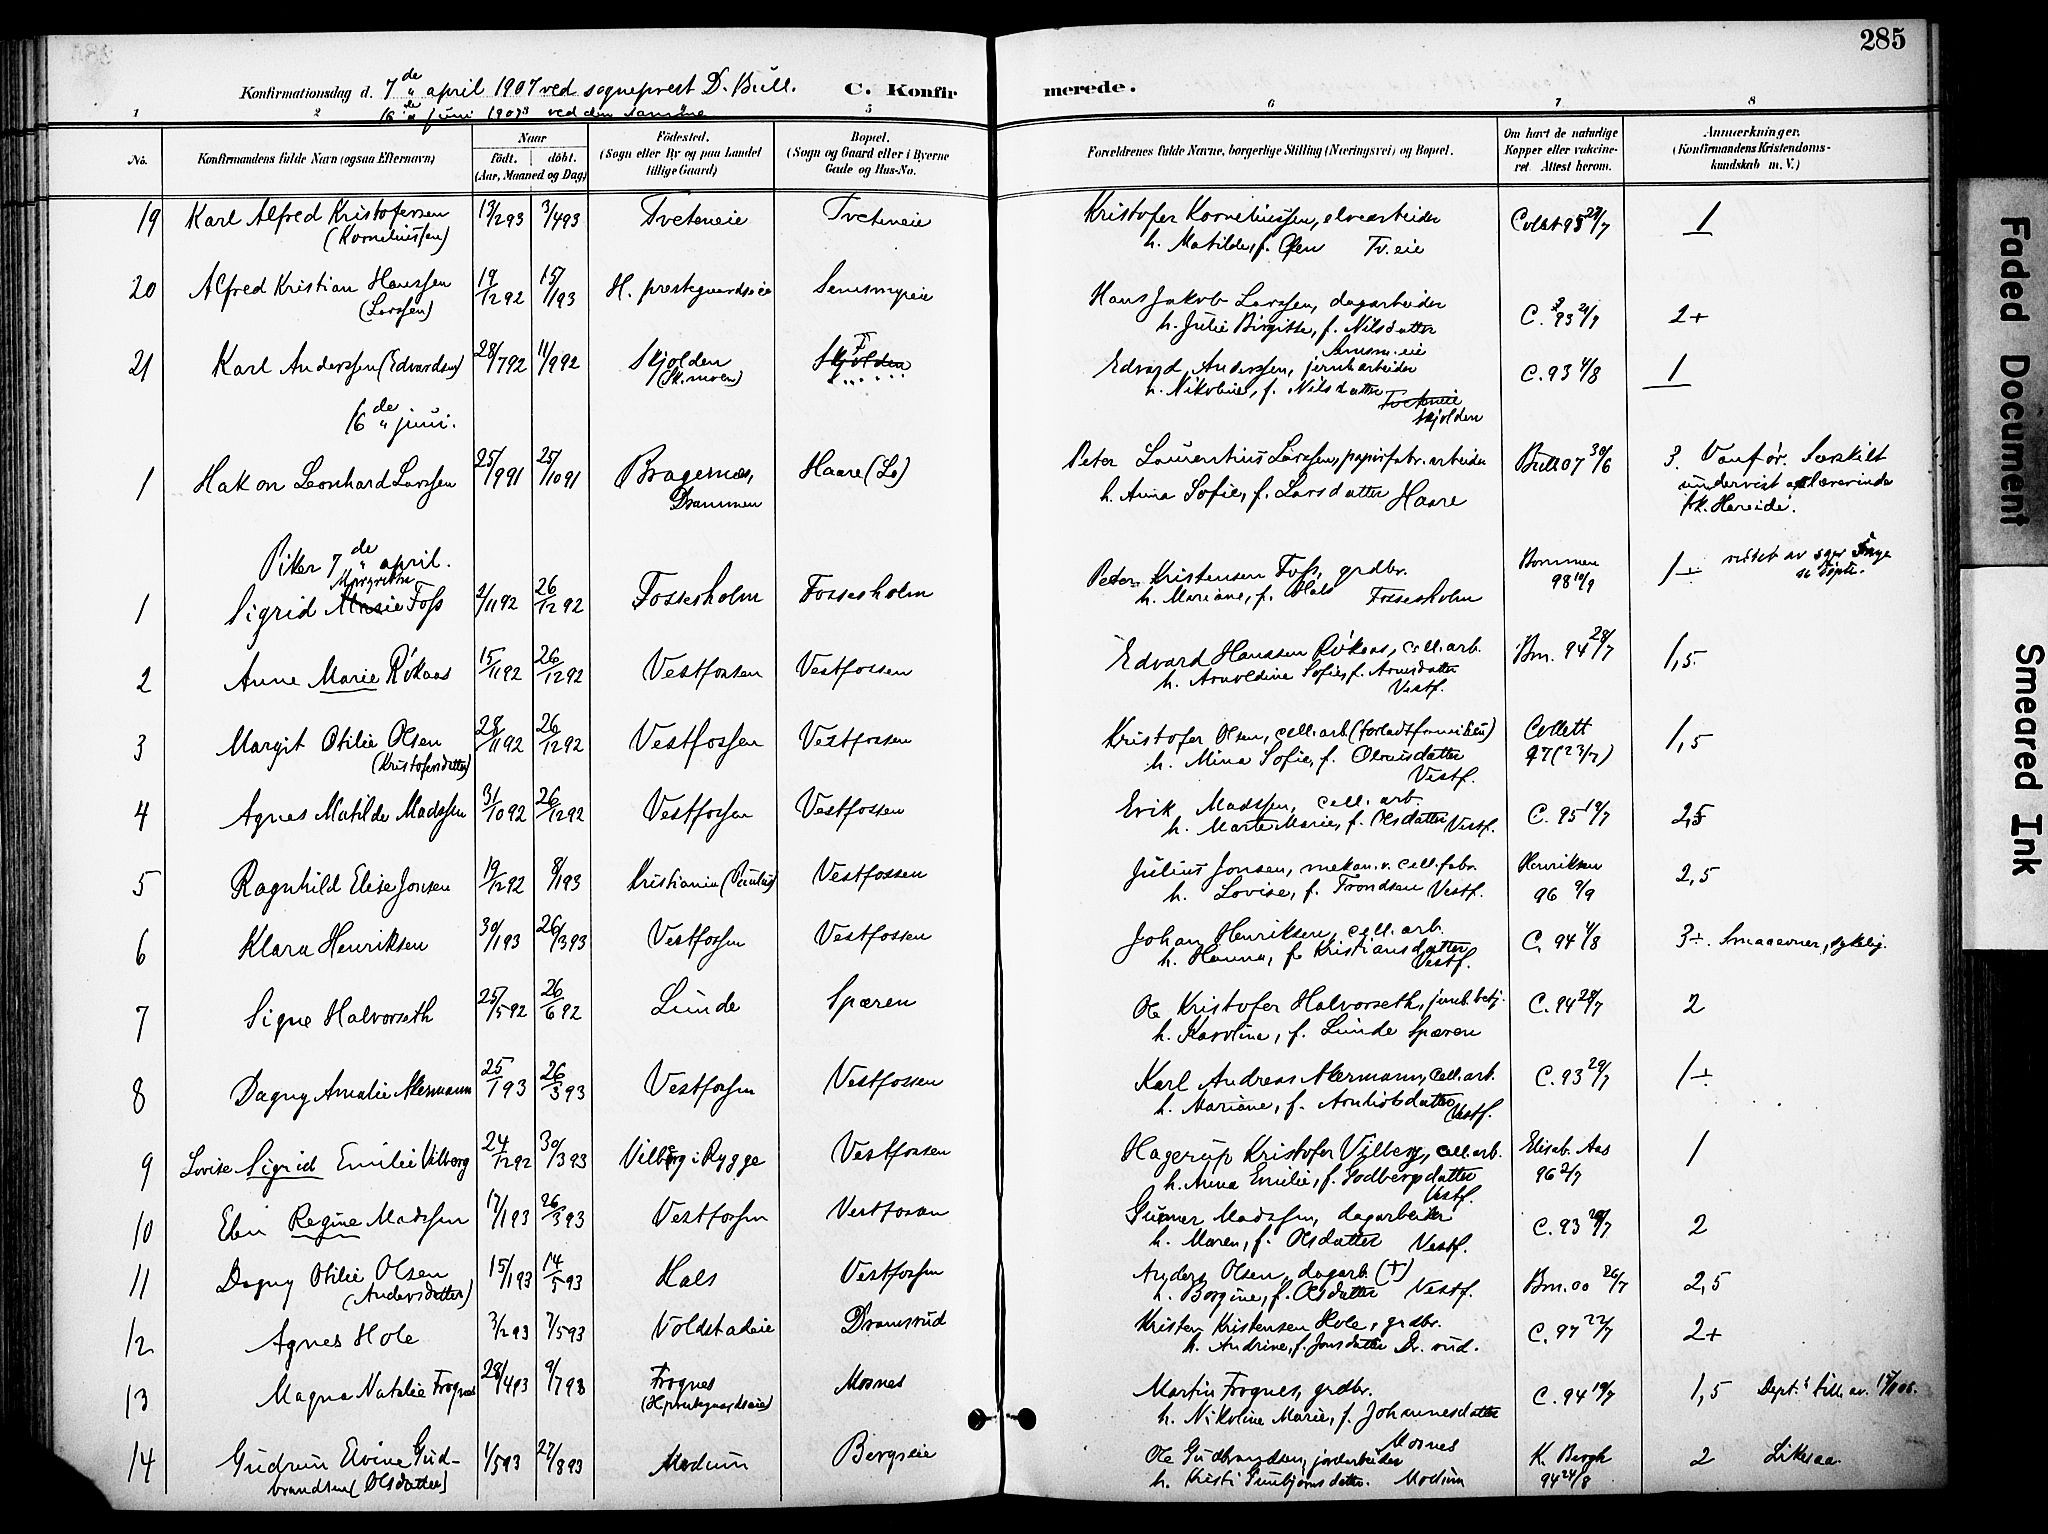 285
Konfirmationsdag d. 7de april 1907 ved sogneprest D. Bull. C. Konfirmerede.
16de juni 1907 ved den samme
1 2 5 6 7 8
No. Konfirmandens fulde Navn (ogsaa Efternavn) Naar födt. döbt. (Aar, Maaned og Dag) Födested. (Sogn eller By og paa Landet tillige Gaard) Bopæl. (Sogn og Gaard eller i Byerne Gade og Hus-No. Forældrenes fulde Navne, borgerlige Stilling (Næringsvei) og Bopæl. Om havt de naturlige Kopper eller vakcineret Attest herom. Anmærkninger. (Konfirmandens Kristendomskundskab m. V.)
19 Karl Alfred Kristofersen 13/2 93 3/4 93 Tveteneie Tveteneie Kristofer Korneliussen, elvearbeider 1
(Korneliussen) h. Matilde, f. Tv. eie
20 Alfred Kristian Hanssen 19/12 92 15/1 93 H. prestegaardseie Semsmyreie Hans Jakob Larssen, dagarbeider 2+
(Larssen) h. Julie Birgitte, f. Nilsdatter
Semsm. eie
21 Karl Anderssen (Edvardsen) 28/7 92 11/9 92 Skjolden Skjolden Edvard Anderssen, jernb.arbeider C. 93 4/8 1
(Sk.moen) h. Nikoline, f. Nilsdatter Tveteneie
Skjolden
16de juni.
1 Hakon Leonhard Larssen 25/9 91 25/10 91 Bragernes, Haare (Lo) Peter Laurentius Larssen, papirfabr. arbeider Bull 07 30/6 3. Vanför. Særskilt
Drammen h. Anna Sofie, f. Larsdatter Haare undervist av lærerinde
frk. Hereide.
Piker 7de april.
1 Sigrid Margrethe Marie Foss 2/11 92 26/12 92 Fossesholm Fossesholm Peter Kristensen Foss, grdbr. 98 10/9 1÷
h. Mariane, f. Hals Fossesholm
2 Anne Marie Røkaas 15/11 92 26/12 92 Vestfossen Vestfossen Edvard Hanssen Røkaas, cell. arb. Bm. 94 28/7 1,5.
h. Arnoldine Sofie, f. Arnesdatter
Vestf.
3 Margit Otilie Olsen 28/11 92 26/12 92 Vestfossen Vestfossen Kristofer Olsen, cell. arb. (forladt familien) Collett 1,5
(Kristofersdatter) h. Mina Sofie, f. 97 (23/7)
Vestf.
4 Agnes Matilde Madssen 31/10 92 26/12 92 Vestfossen Vestfossen Erik Madssen, cell. arb. C. 95 19/7 2,5
h. Marte Marie, f. Olsdatter Vestf.
5 Ragnhild Elise Jonsen 19/12 92 8/1 93 Kristiania (Paulus) Vestfossen Julius Jonsen, mekan. v. cell. fabr. Henriksen 2,5
h. Lovise, f. Trondsen Vestf. 96 9/9
6 Klara Henriksen 30/1 93 26/3 93 Vestfossen Vestfossen Johan Henriksen, cell. arb. C. 94 4/8 3÷ Smaa evner, sykelig.
h. Hanna, f. Kristiansdatter
Vestf.
7 Signe Halvorseth 25/5 92 26/6 92 Lunde Spæren Ole Kristofer Halvorseth, jernb. betj. C. 94 28/7 2
h. Karoline, f. Lunde Spæren
8 Dagny Amalie Akermann 25/1 93 26/3 93 Vestfossen Vestfossen Karl Andreas Akermann, cell. arb. C. 93 29/7 1÷
h. Mariane, f. Arnliotsdatter Vestf.
9 Lovise Sigrid Emilie Vilberg 24/12 92 30/3 93 Vilberg i Rygge Vestfossen Hagerup Kristofer Vilberg, cell. arb. Elisab. Aas 1
h. Anna Emilie, f. Godbergsdatter 96 2/7
Vestf.
10 Elen Regine Madssen 17/1 93 26/3 93 Vestfossen Vestfossen Gunner Madssen, dagarbeider C. 93 2
h. Maren, f. Olsdatter Vestf.
11 Dagny Otilie Olsen 15/1 93 14/5 93 Hals Vestfossen Anders Olsen, dagarb. (+) Bm. 00 26/7 2,5
(Andersdatter) h. Borgine, f. Olsdatter Vestf.
12 Agnes Hole 3/2 93 7/5 93 Voldstadeie Dramsrud Krister Kristensen Hole, grdbr. C. 97 22/7 2+
h. Andrine, f. Jonsdatter Dr. rud.
13 Magna Natalie Frognes 28/4 93 9/7 93 Frognes Mosnes Martin Frognes, grdbr. C. 94 19/7 1,5 Dept.s till. av
(H. prestegaardseie) h. Nikoline Marie, f. Johannesdatter
Mosnes
14 Gudrun Elvine Gud- 1/5 93 27/8 93 Modum Bergseie Ole Gudbrandsen, jordarbeider K. Bergh 2 Likesaa.
brandsen (Olsdatter) h. Kristi Gunbjørnsdatter. Modum 94 24/8
Faded Document
Smeared Ink